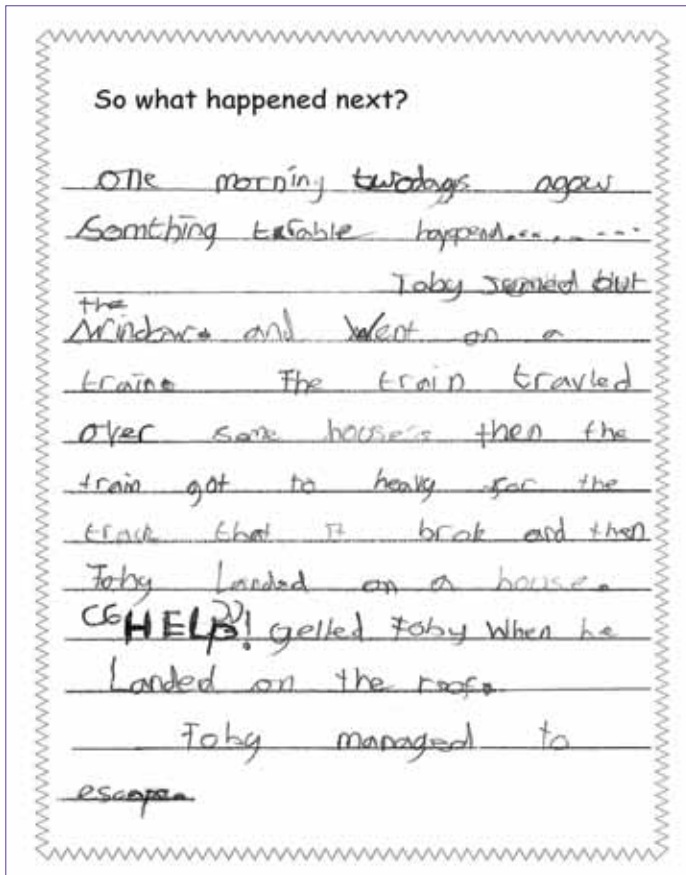 So what happened next?
One morning twodays agow
Somthing terable happend.........
Toby jumed out
the
Window. and Went on a
train. The train travled
over some house's then the
train got to heavy for the
track that it brok and then
Toby Landed on a house.
"HELP"! yelled Toby When he
Landed on the roof.
Toby managed to
escape.